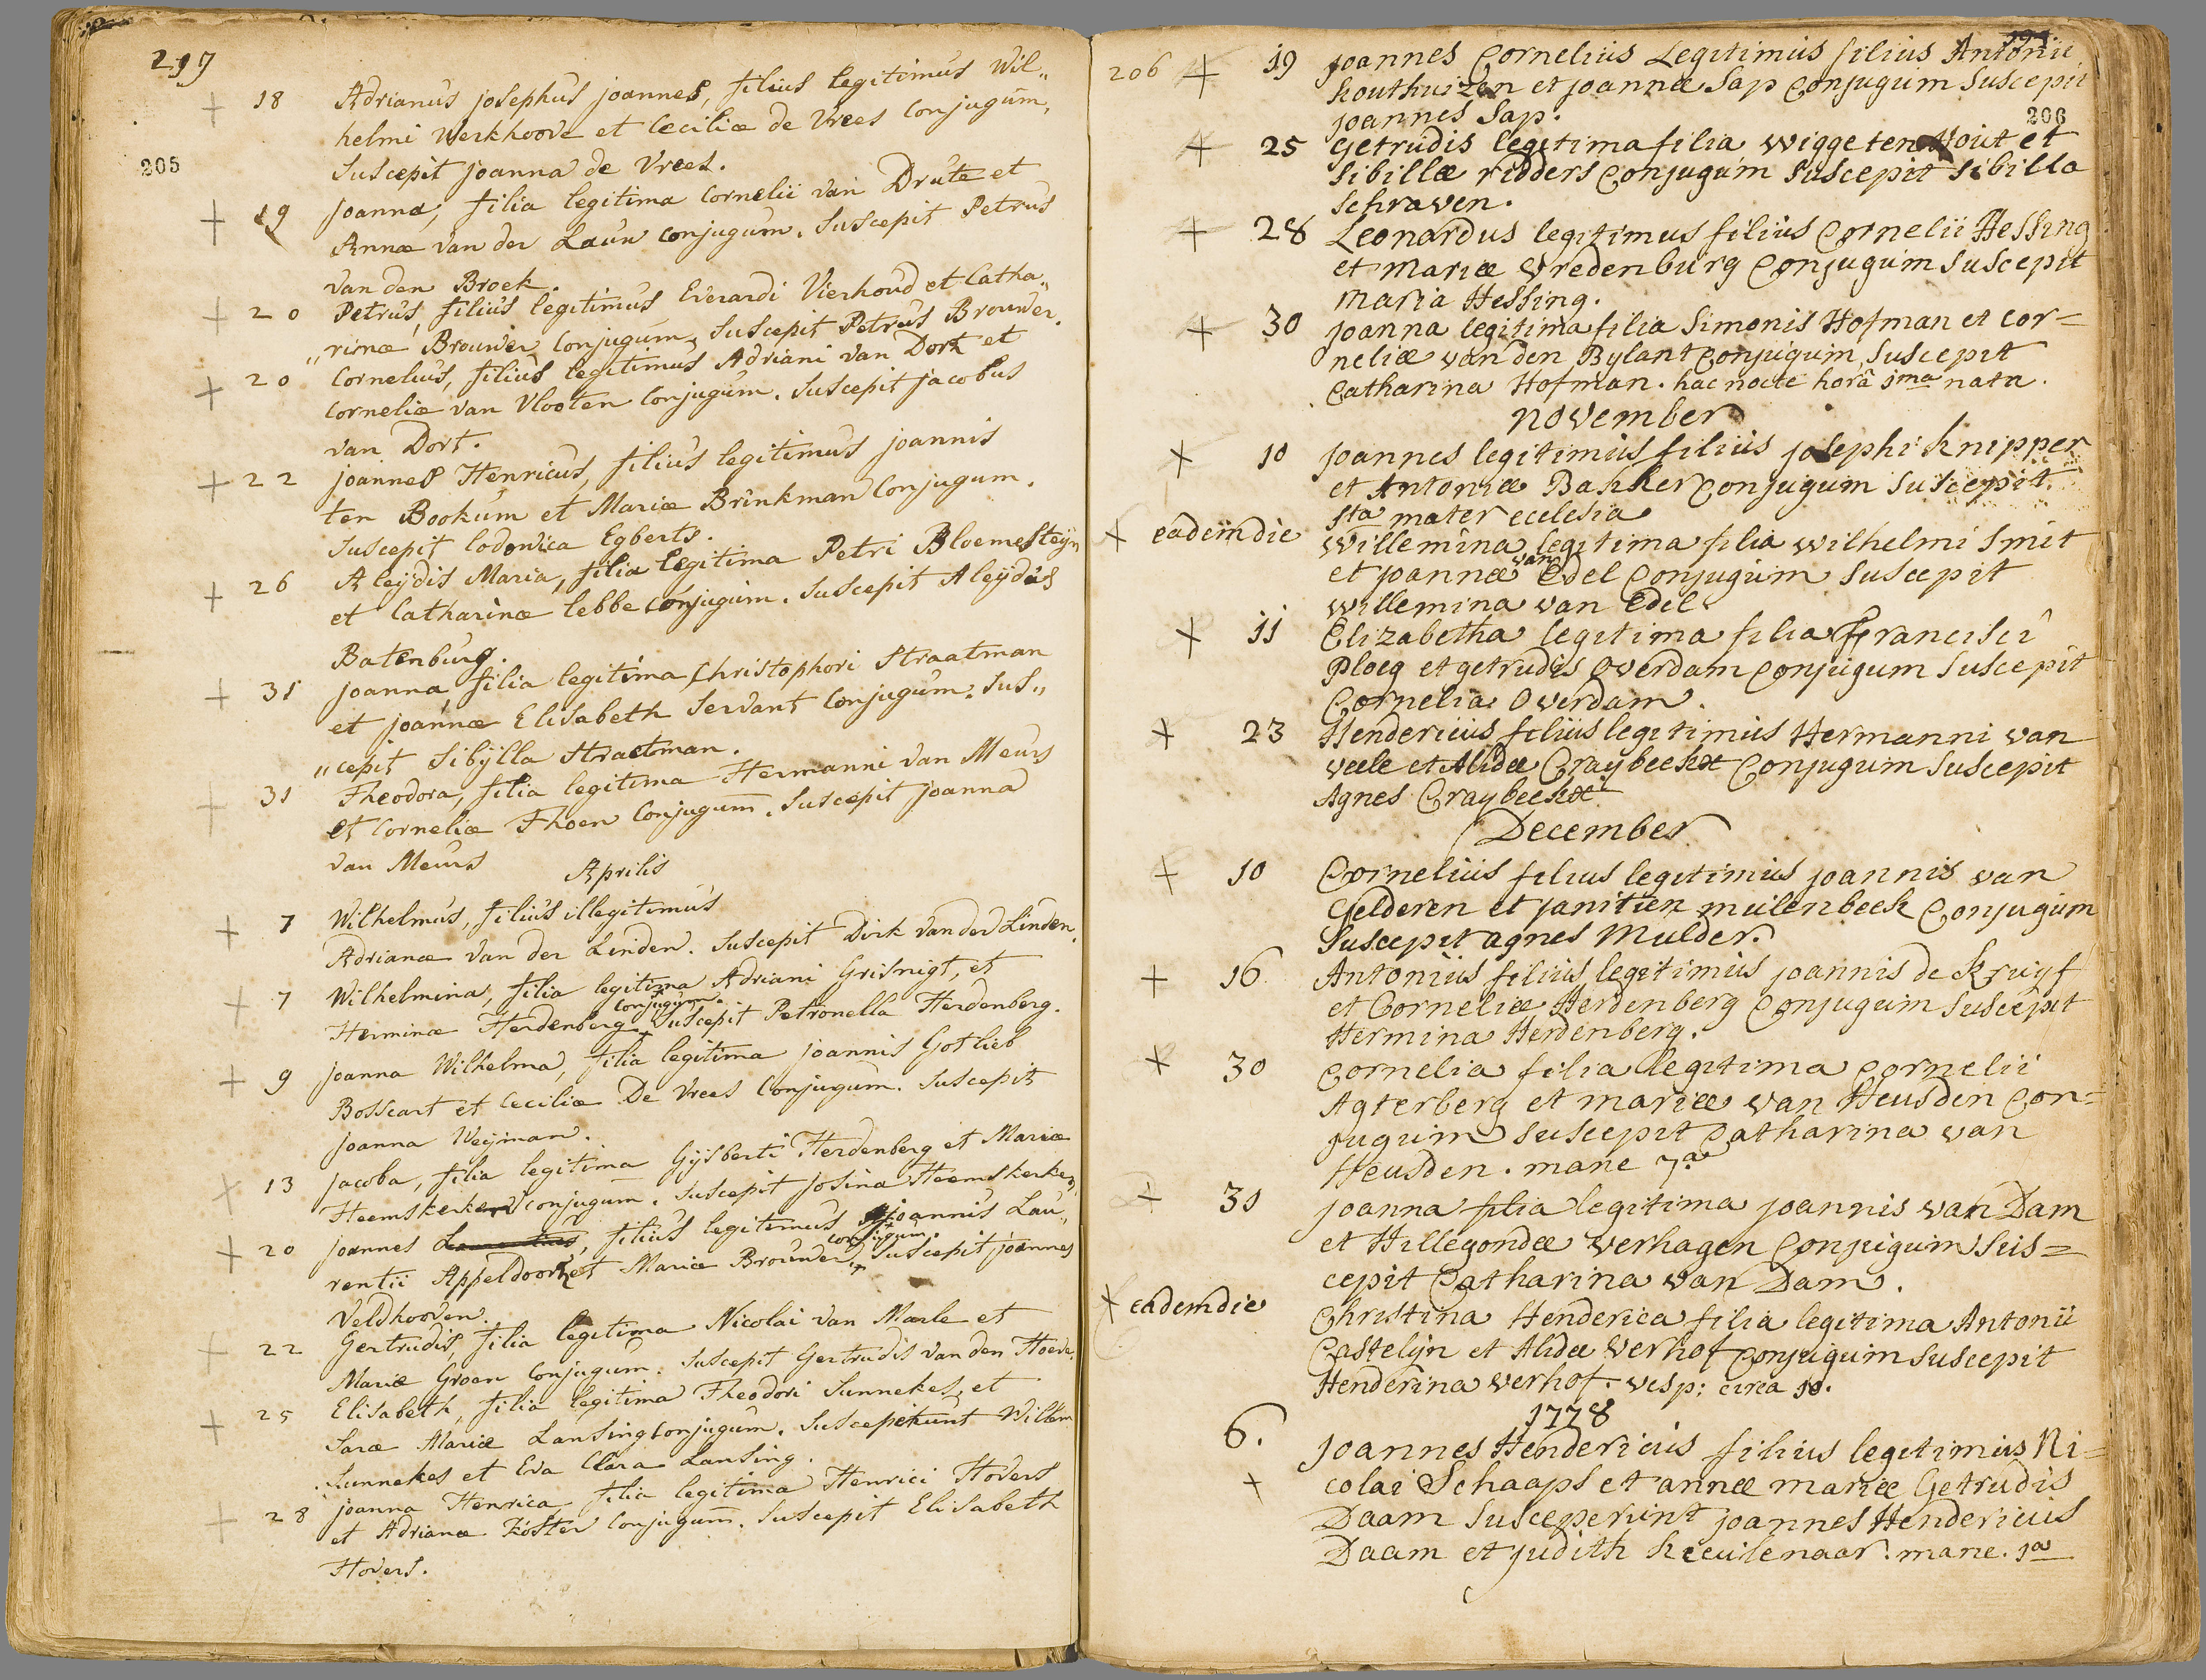 217
18 Adrianus josephus joannes, filius legitimus Wil„
helmi Werkhoove et Cæciliæ de Vrees Conjugum,
Suscepit joanna de Vrees.
205
19 joanna, filia legitima Cornelii van Drute et
Annæ van der Laun conjugum. Suscepit Petrus
van den Broek.
20 Petrus, filius legitimus Everardi Vierhoud et Catha„
„rinæ Brouwer Conjugum, Suscepit Petrus Brouwer.
20 Cornelius, filius legitimus Adriani van Dort et
Corneliæ van Vlooten Conjugum. Suscepit jacobus
van Dort.
22 joannes Henricus, filius legitimus joannis
ten Bookum et Mariæ Brinkman Conjugum.
Suscepit lodowica Egberts.
26 Aleydis Maria, filia legitima Petri Bloemesteyn
et Catharinæ lebbe conjugum. Suscepit Aleydis
Batenburg.
31 joanna filia legitima Christophori Straatman
et joannæ Elisabeth Servant Conjugum. Sus„
„cepit Sibylla Straetman.
31 Theodora, filia legitima Hermanni van Meurs
et Corneliæ Thoen Conjugum. Suscepit joanna
van Meurs
Aprilis
7 Wilhelmus, filius illegitimus
Adrianæ van der Linden. Suscepit Dirk van der Linden.
7 Wilhelmina, filia legitima Adriani Grisnigt, et
conjugum.
Herminæ Herdenberg Suscepit Petronella Herdenberg.
9 joanna Wilhelma, filia legitima joannis Gotlieb
Bosscart et Cæciliæ De Vrees Conjugum. Suscepit
joanna Weyman.
13 jacoba, filia legitima Gysberti Herdenberg et Mariæ
Heemskerken conjugum. Suscepit josina Heemskerken.
20 joannes Laurentius, filius legitimus joannis Lau„
conjugum.
rentii Appeldoorn et Mariæ Brouwer, Suscepit joannes
Veldhooven.
22 Gertrudis, filia legitima Nicolai van Marle et
Mariæ Groen Conjugum. Suscepit Gertrudis van den Hoeve.
25 Elisabeth, filia legitima Theodori Sunnekes, et
Saræ Mariæ Lansing conjugum. Susceperunt Willem
Sunnekes et Eva Clara Lansing.
28 joanna Henrica filia legitima Henrici Hovers
et Adrianæ Koster Conjugum. Suscepit Elisabeth
Hovers.
206 19 joannes Cornelius Legitimus filius Antonii
Houthuizen et joannæ Sap Conjugum Suscepit
joannes Sap.
206
25 Getrudis legitima filia wigge ten Hout et
Sibillæ ridders Conjugum Suscepit Sibilla
Schraven.
28 Leonardus legitimus filius Cornelii Hessing
et Mariæ Vredenburg Conjugum Suscepit
Maria Hessing.
30 joanna legitima filia Simonis Hofman et Cor=
neliæ van den Bylant Conjugum Suscepit
Catharina Hofman. hac nocte horâ 1ma nata.
november
10 joannes legitimus filius josephi Knipper
et Antoniæ Bakker Conjugum Suscepit
Sta mater ecclesia
eadem die Willemina legitima filia Wilhelmi Smit
van
et joannæ Edel Conjugum Suscepit
Willemina van Edel
11 Elizabetha legitima filia Francisci
Ploeg et getrudis Overdam Conjugum Suscepit
Cornelia Overdam.
23 Hendericus filius legitimus Hermanni van
veele et Alidæ Craybeekx Conjugum Suscepit
Agnes Craybeekx
December
10 Cornelius filius legitimus joannis van
Gelderen et janitien meilenbeek Conjugum
Suscepit agnes Mulder.
16 Antonius filius legitimus joannis de Kruyf
et Corneliæ Herdenberg Conjugum Suscepit
Hermina Herdenberg.
30 Cornelia filia legitima Cornelii
Agterberg et mariæ van Heusden Con=
jugum Suscepit Catharina van
Heusden. mane 7a
31 joanna filia legitima joannis van Dam
et Hillegondæ Verhagen Conjugum Sus=
cepit Catharina van Dam.
eadem die Christina Henderica filia legitima Antonii
Castelijn et Alidæ Verhof Conjugum Suscepit
Henderina Verhof. vesp: circa 10.
1778
6. Joannes Hendericus filius legitimus Ni=
colai Schaaps et annæ mariæ Getrudis
Daam Susceperunt joannes Hendericus
Daam et judith Keeulenaar. mane. 1a